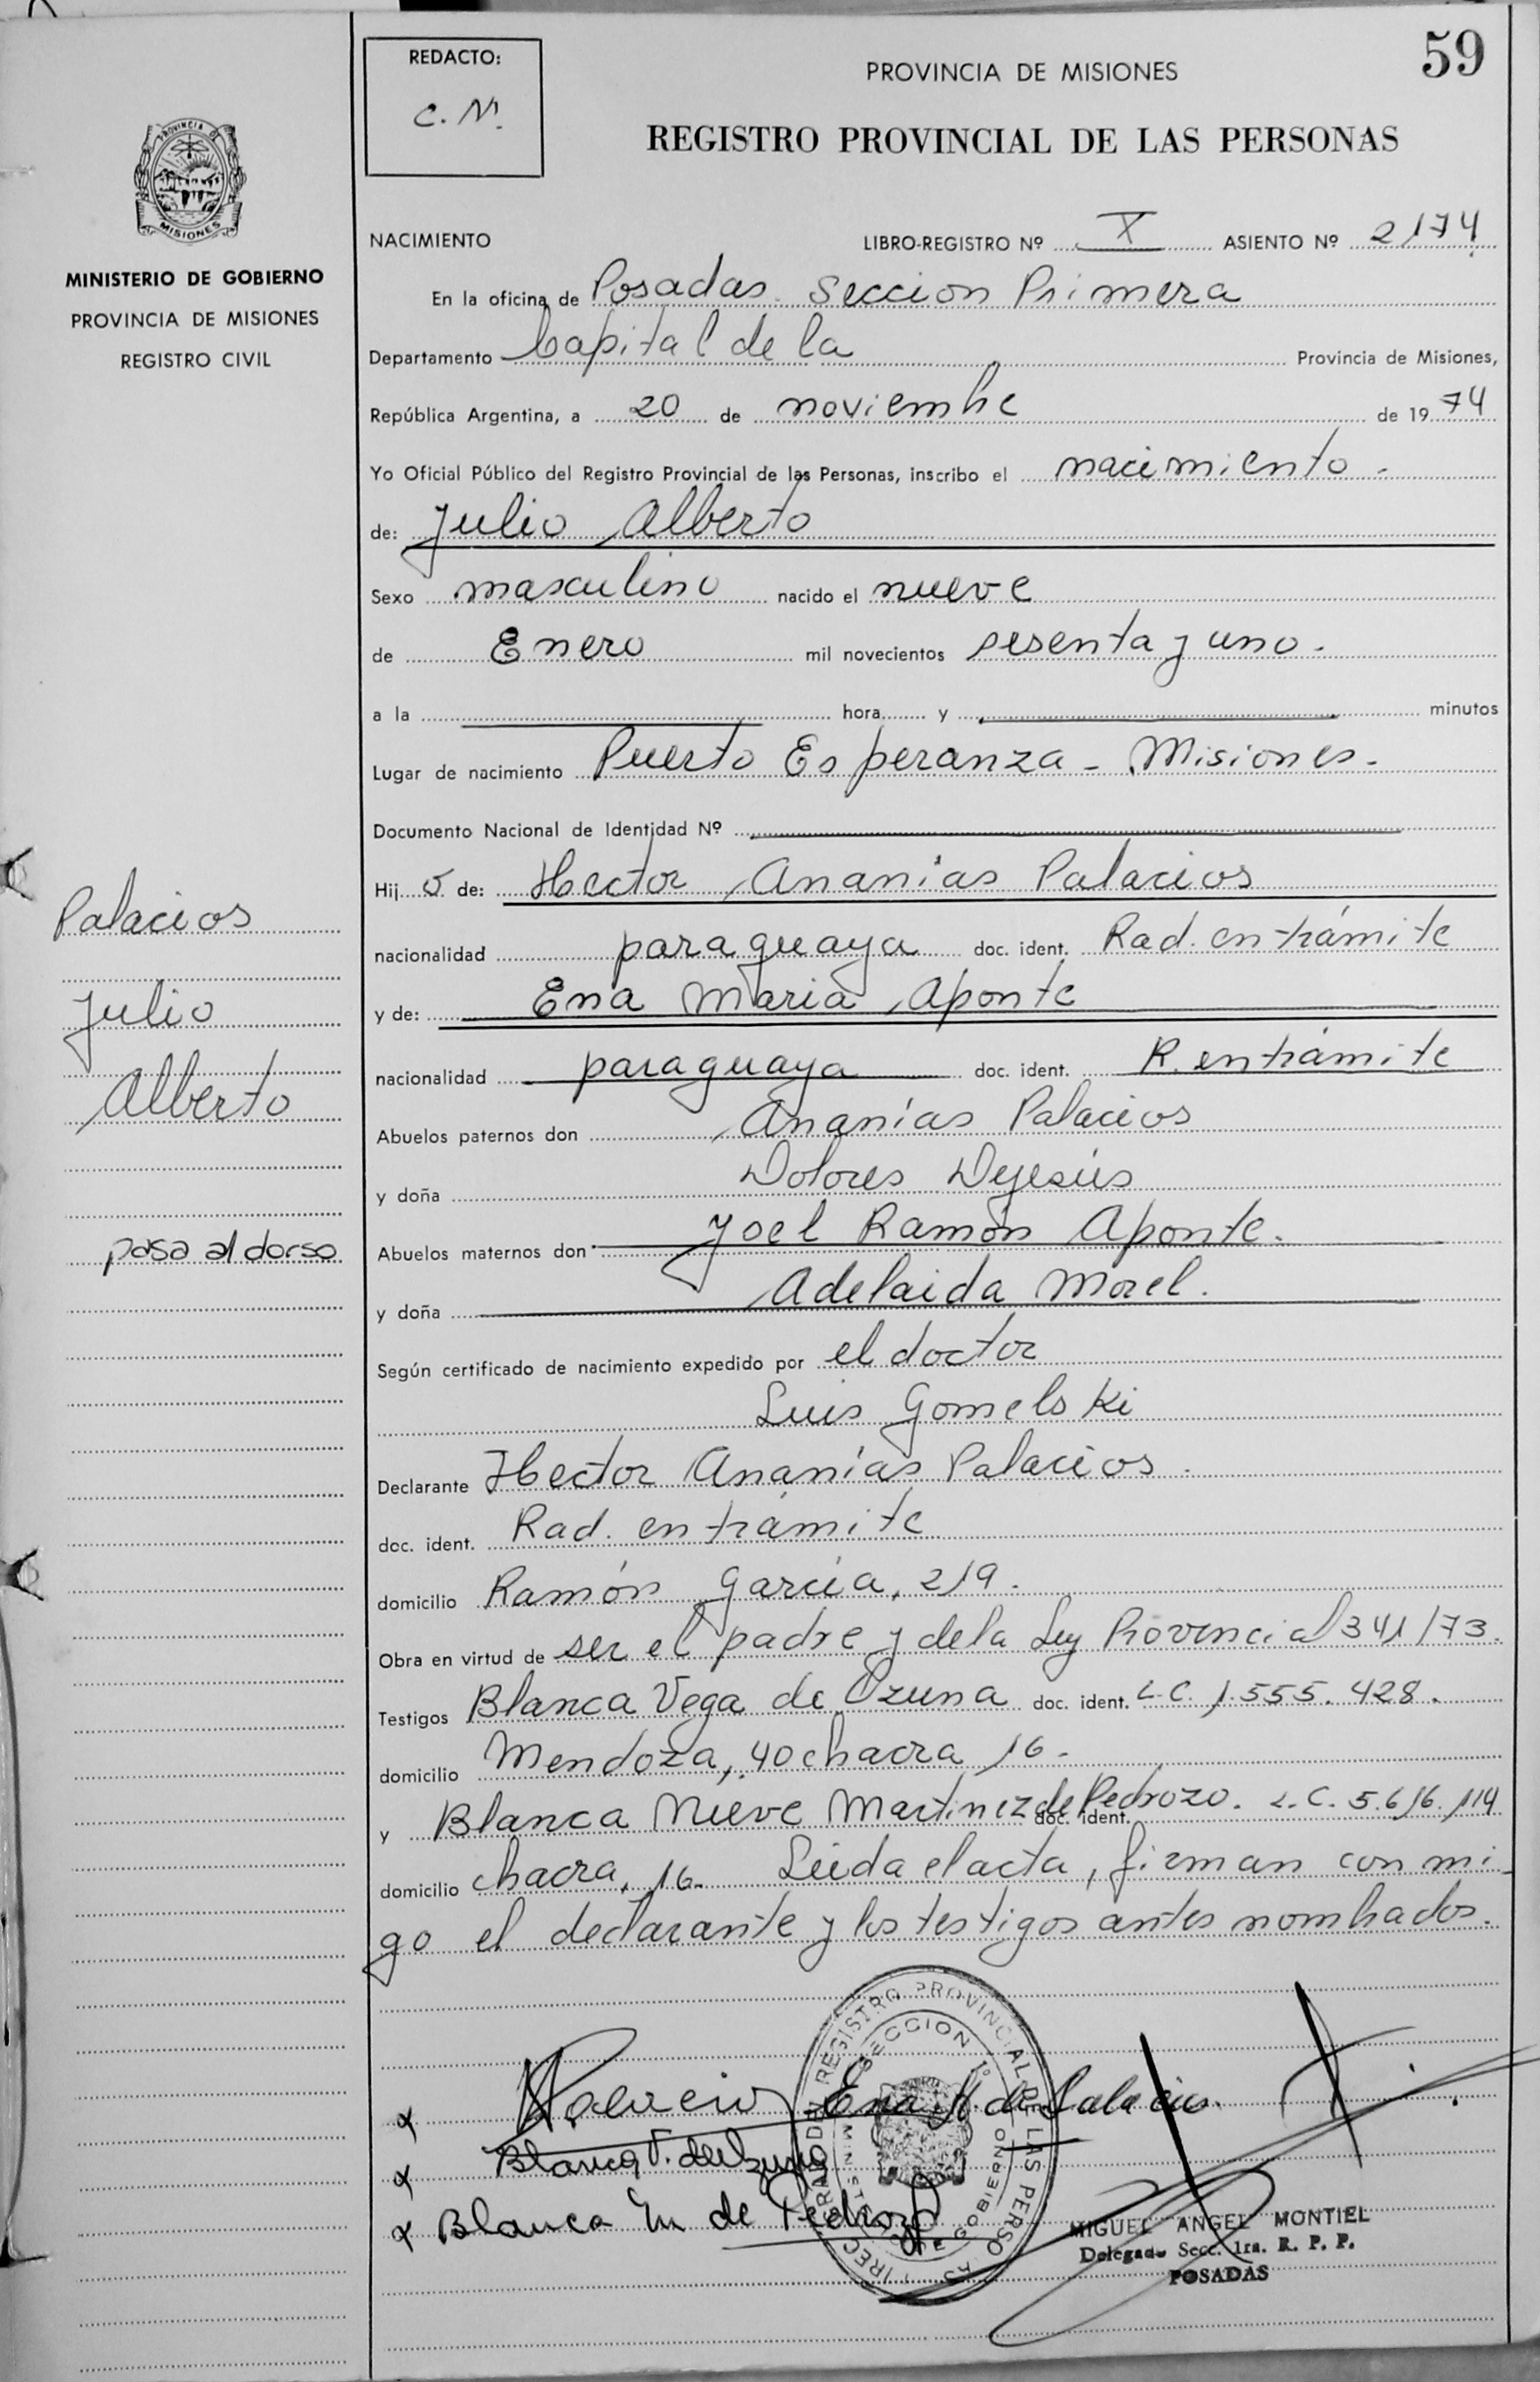 59
REDACTO:
C. N.
PROVINCIA DE MISIONES
REGISTRO PROVINCIAL DE LAS PERSONAS
PROVINCIA DE
MISIONES
MINISTERIO DE GOBIERNO
PROVINCIA DE MISIONES
REGISTRO CIVIL
NACIMIENTO LIBRO-REGISTRO Nº X ASIENTO Nº 2174
En la oficina de Posadas Seccion Primera
Departamento Capital de la Provincia de Misiones,
República Argentina, a 20 de noviembre de 1974
Yo Oficial Público del Registro Provincial de las Personas, inscribo el nacimiento.
de: Julio Alberto
Sexo masculino nacido el nueve
de Enero mil novecientos sesenta y uno.
a la hora y minutos
Lugar de nacimiento Puerto Esperanza - Misiones.
Documento Nacional de Identidad Nº
Hijo de: Hector Ananías Palacios
nacionalidad paraguaya doc. ident. Rad. en trámite
y de: Ena Maria Aponte
nacionalidad paraguaya doc. ident. R. en trámite
Abuelos paternos don Ananías Palacios
y doña Dolores Dejesús
Abuelos maternos don Joel Ramón Aponte.
y doña Adelaida Morel.
Según certificado de nacimiento expedido por el doctor
Luis Gomelski
Declarante Hector Ananías Palacios.
doc. ident. Rad. en trámite
domicilio Ramón García, 219.
Obra en virtud de ser el padre y de la Ley Provincial 341/73.
Testigos Blanca Vega de Ozuna doc. ident. L.C. 1.555.428.
domicilio Mendoza, 40 chacra 16.
y Blanca Nieve Martinez de Pedrozo. doc. ident. L.C. 5.616.114
domicilio chacra, 16. Leida el acta, firman con mi-
go el declarante y los testigos antes nombrados.
Palacios
Julio
Alberto
pasa al dorso
Palacios Ena A. de Palacios.
Blanca V. de Ozuna
Blanca M de Pedrozo
REGISTRO PROVINCIAL DE LAS PERSONAS
SECCION 1º
MINISTERIO DE GOBIERNO
MIGUEL ANGEL MONTIEL
Delegado Secc. 1ra. R. P. P.
POSADAS